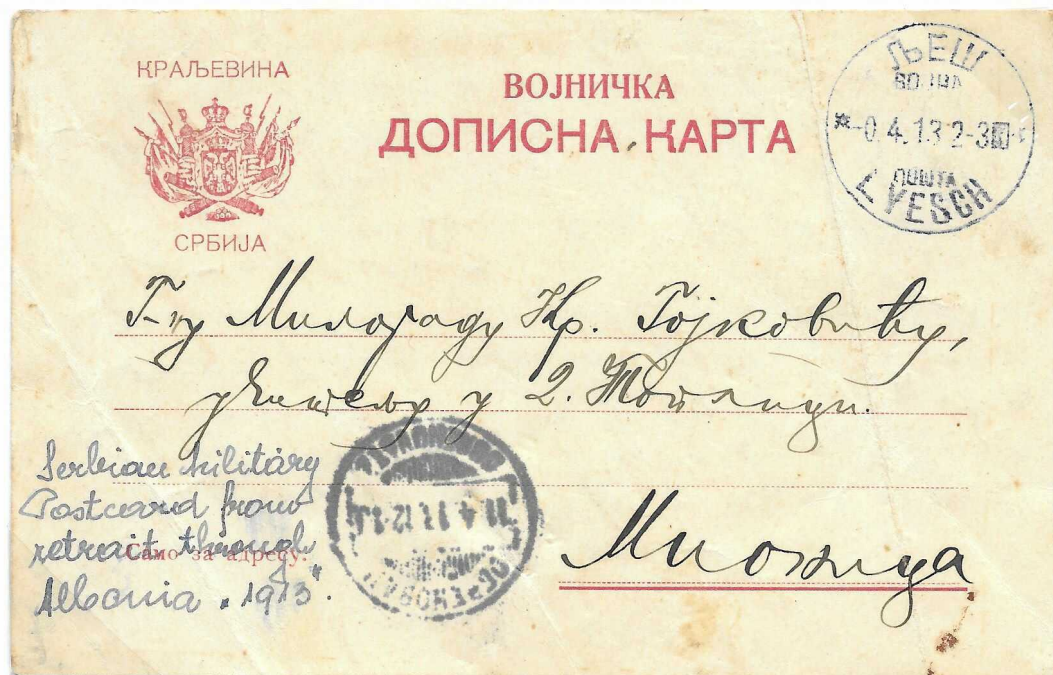 КРАЉЕВИНА
СРБИЈА
ВОЈНИЧКА
ДОПИСНА КАРТА
ЉЕШ
ВОЈНА
-0.4.13 2-3
ПОШТА
LYESCH
Г-ну Милораду Кр. Гојковићу,
учитељу у 2. Топлици.
Serbian Military
Postcard from
retrait through
Albania . 1913".
Само за адресу.
11.4.13.12
Мионица